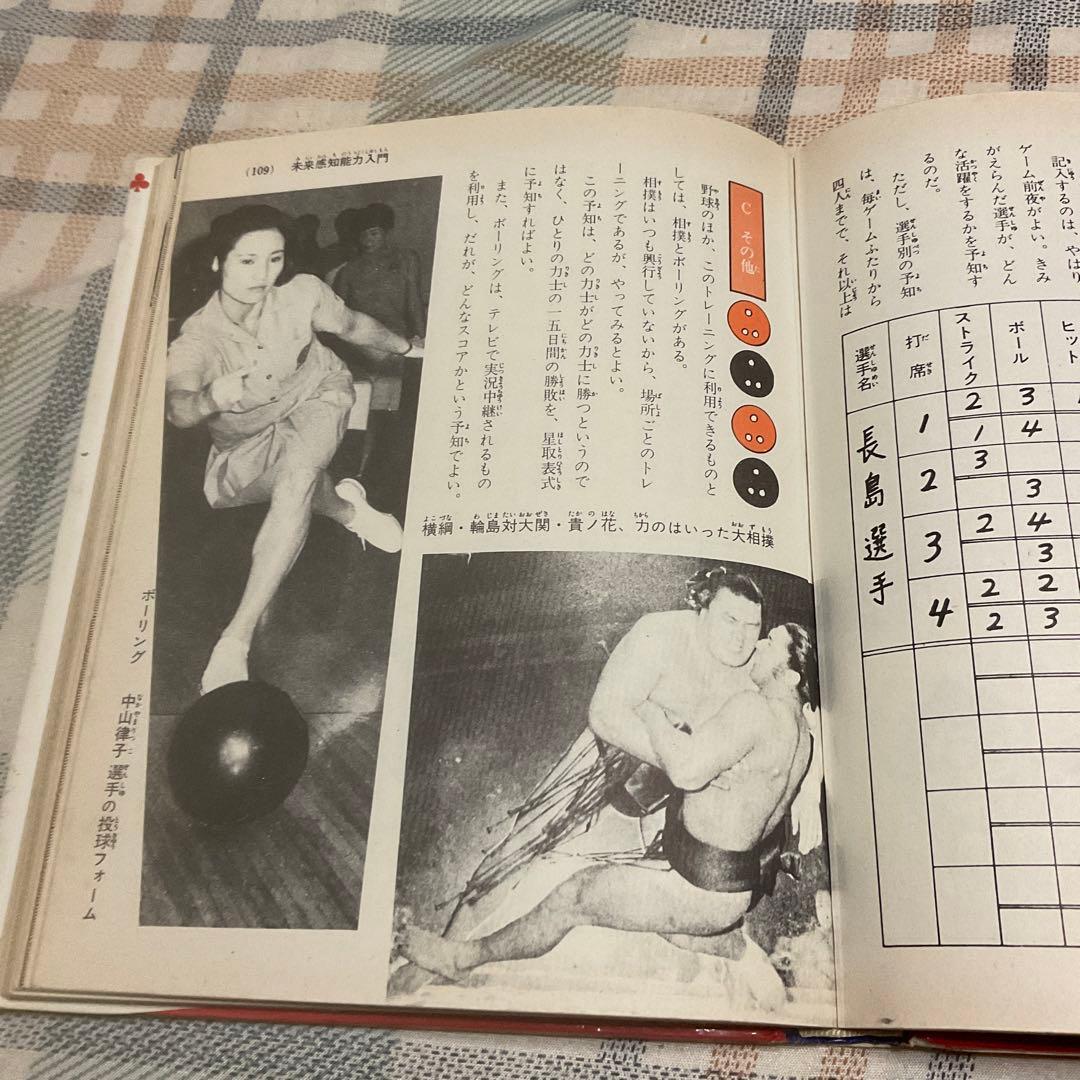 記入するのは、やはり
ゲーム前夜がよい。きみ
がえらんだ選手が、どん
な活躍をするかを予知す
るのだ。
ただし、選手別の予知
は、毎ゲームふたりから
四人までで、それ以上は
選手名
打席
ストライク
ボール
ヒット
長島選手
1
2
3
1
4
2
3
3
3
2
4
3
4
2
2
2
3
C その他
野球のほか、このトレーニングに利用できるものと
しては、相撲とボーリングがある。
相撲はいつも興行していないから、場所ごとのトレ
ーニングであるが、やってみるとよい。
この予知は、どの力士がどの力士に勝つというので
はなく、ひとりの力士の一五日間の勝敗を、星取表式
に予知すればよい。
また、ボーリングは、テレビで実況中継されるもの
を利用し、だれが、どんなスコアかという予知でよい。
横綱・輪島対大関・貴ノ花、力のはいった大相撲
(109) 未来感知能力入門
ボーリング
中山律子選手の投球フォーム